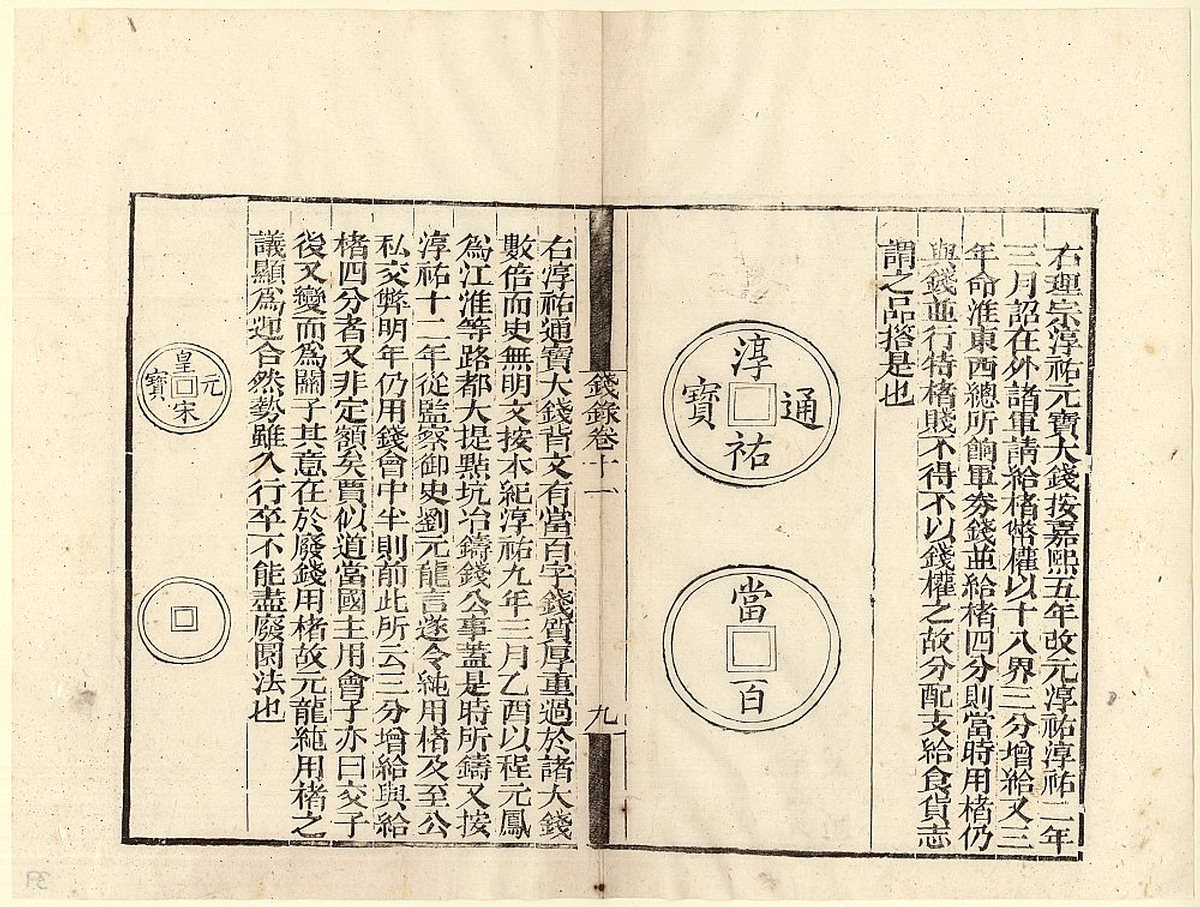 右理宗淳祐元寶大錢按嘉熙五年改元淳祐淳祐二年
三月詔在外諸軍請給楮幣權以十八界三分增給又三
年命淮東西總所餉軍券錢並給楮四分則當時用楮仍
與錢並行特楮賤不得不以錢權之故分配支給食貨志
謂之品搭是也
淳祐通寶
當百
錢錄卷十一
九
右淳祐通寶大錢背文有當百字錢質厚重過於諸大錢
數倍而史無明文按本紀淳祐九年三月乙酉以程元鳳
爲江淮等路都大提點坑冶鑄錢公事蓋是時所鑄又按
淳祐十二年從監察御史劉元龍言遂令純用楮及至公
私交弊明年仍用錢會中半則前此所云三分增給與給
楮四分者又非定額矣賈似道當國主用會子亦曰交子
後又變而爲關子其意在於廢錢用楮故元龍純用楮之
議顯爲迎合然勢雖久行卒不能盡廢圜法也
皇宋元寶
39